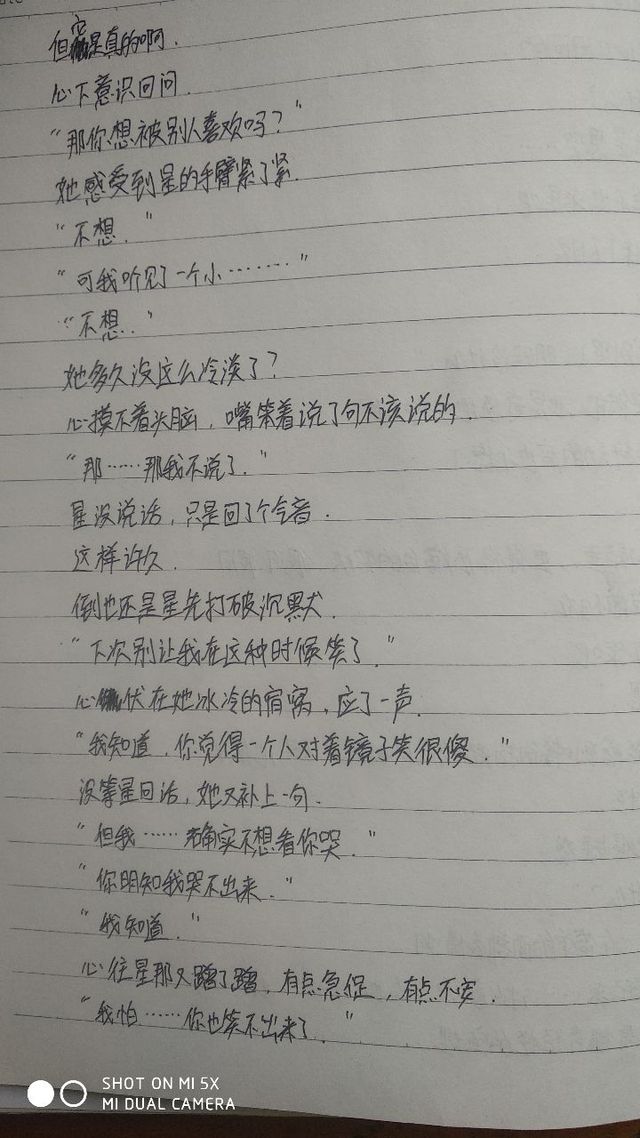 但它是真的啊.
心下意识回问.
“那你想被别人喜欢吗？”
她感受到星的手臂紧了紧.
“不想.”
“可我听见了一个小………”
“不想.”
她多久没这么冷淡了？
心摸不着头脑，嘴笨着说了句不该说的.
“那……那我不说了.”
星没说话，只是回了个气音.
这样许久.
倒也还是星先打破沉默.
“下次别让我在这种时候笑了.”
心伏在她冰冷的肩窝，应了一声.
“我知道，你觉得一个人对着镜子笑很傻.”
没等星回话，她又补上一句.
“但我……确实不想看你哭.”
“你明知我哭不出来.”
“我知道.”
心往星那又蹭了蹭，有点急促，有点不安.
“我怕……你也笑不出来了.”
SHOT ON MI 5X
MI DUAL CAMERA